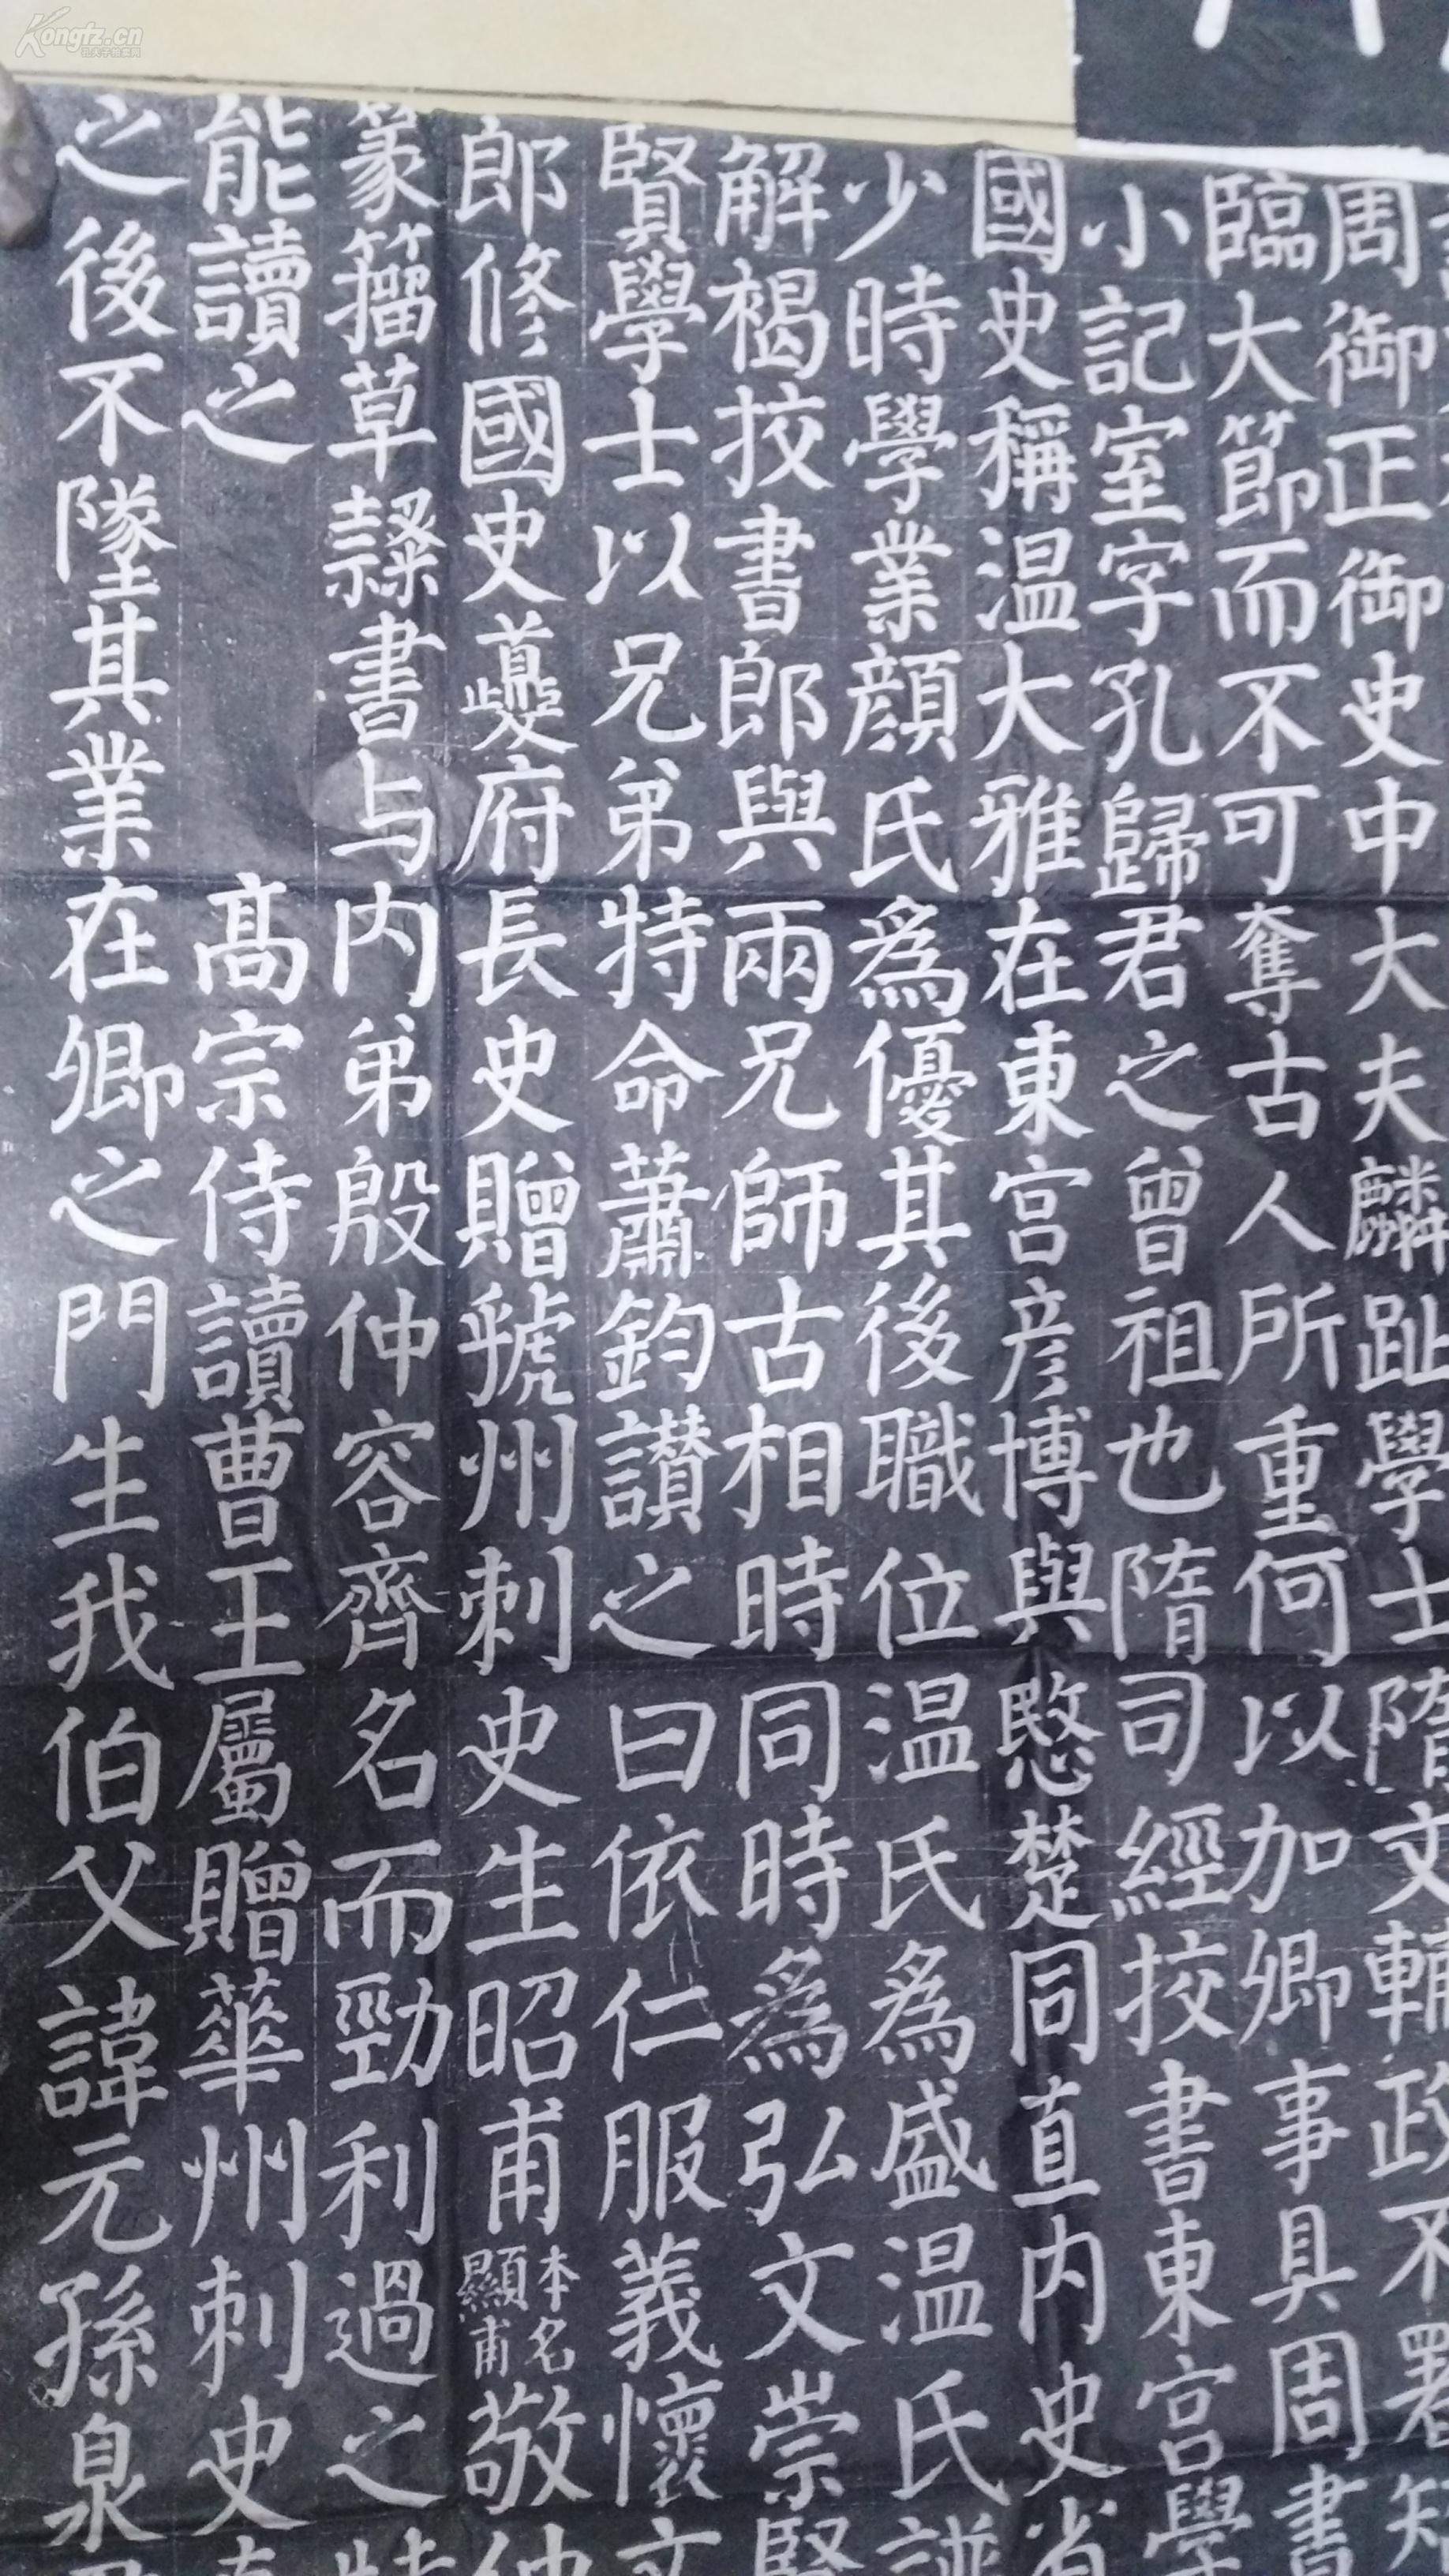 周御正御史中大夫麟趾學士隋文輔政不署知
臨大節而不可奪古人所重何以加卿事具周書
小記室字孔歸君之曾祖也隋司經挍書東宮學
國史稱温大雅在東宮彦博與愍楚同直内史省
少時學業顔氏爲優其後職位温氏爲盛温氏譜
解褐挍書郎與兩兄師古相時同時爲弘文崇賢
賢學士以兄弟特命蕭鈞讃之曰依仁服義懷文
郎修國史夔府長史贈虢州刺史生昭甫本名顯甫敬仲
篆籀草隸書与内弟殷仲容齊名而勁利過之特
能讀之 高宗侍讀曹王屬贈華州刺史
之後不墜其業在卿之門生我伯父諱元孫泉
Kongfz.cn